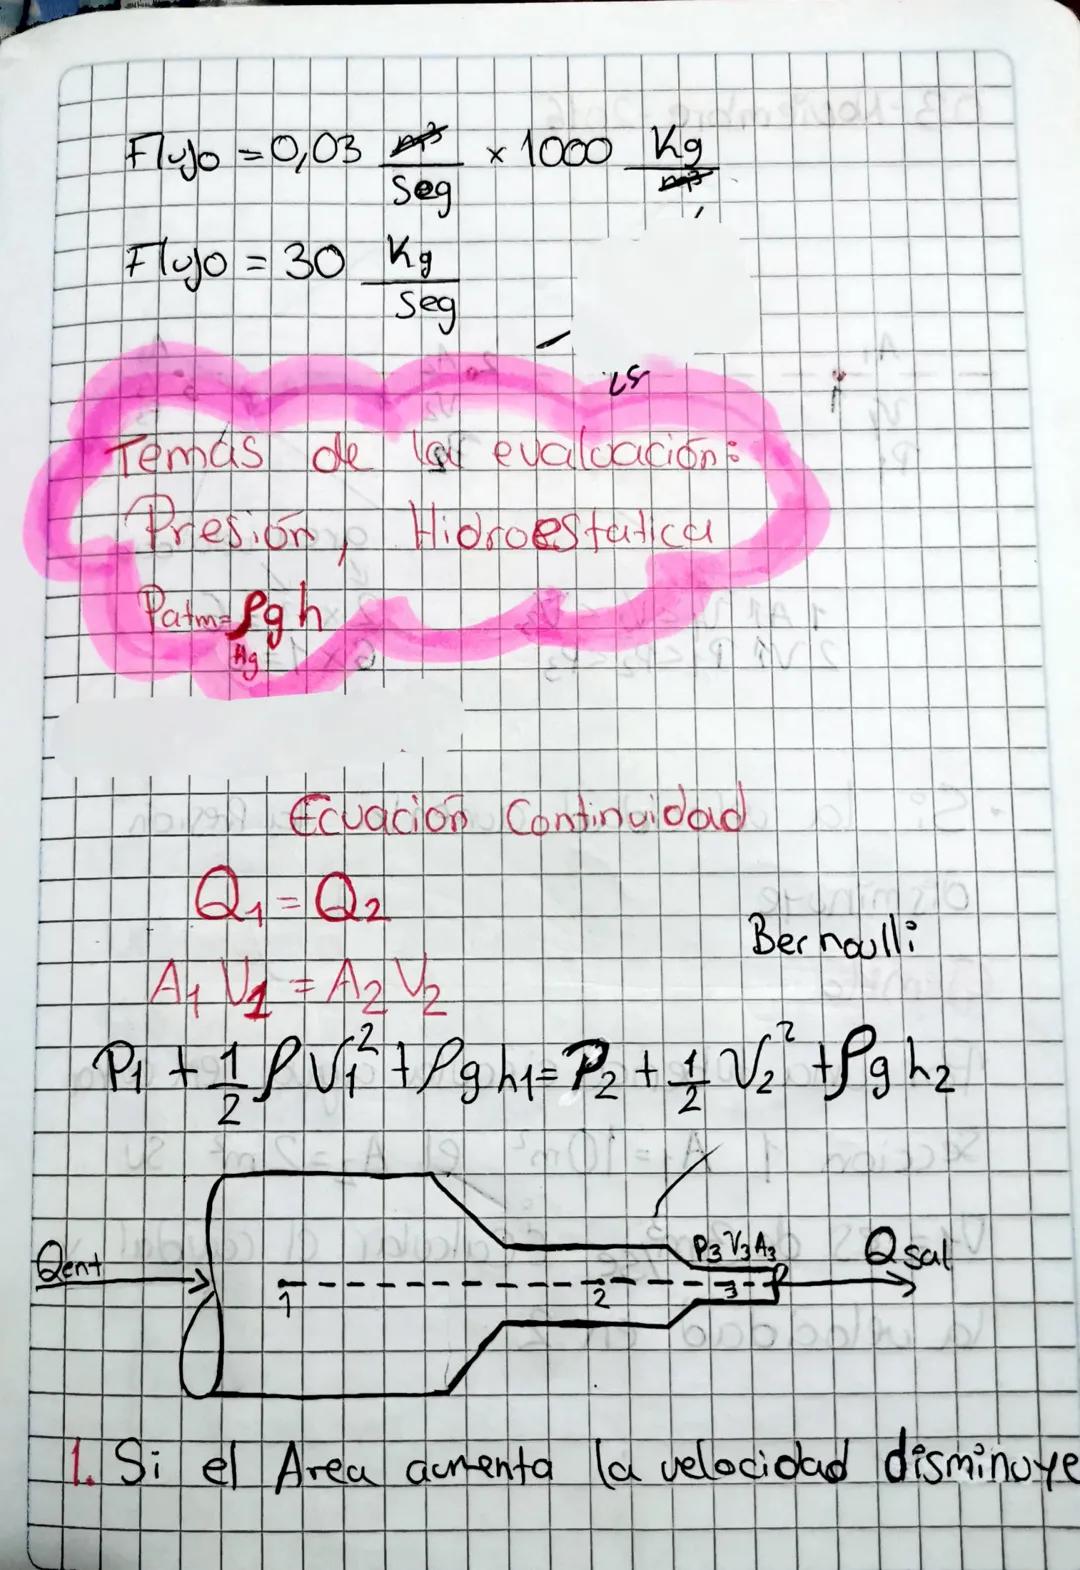 Flujo = 0,03 m³/Seg × 1000 Kg/m³
Flujo = 30 Kg/Seg
Temas de la evaluación:
Presión, Hidroestatica
Patm = ρgh
Hg
Ecuación Continuidad
Q₁ = Q₂
Bernoulli
A₁ V₁ = A₂ V₂
P₁ + 1/2 ρ V₁² + ρg h₁ = P₂ + 1/2 V₂² + ρg h₂
P₃ V₃ A₃
Qent
Qsal
1 2 3
1. Si el Area aumenta la velocidad disminuye